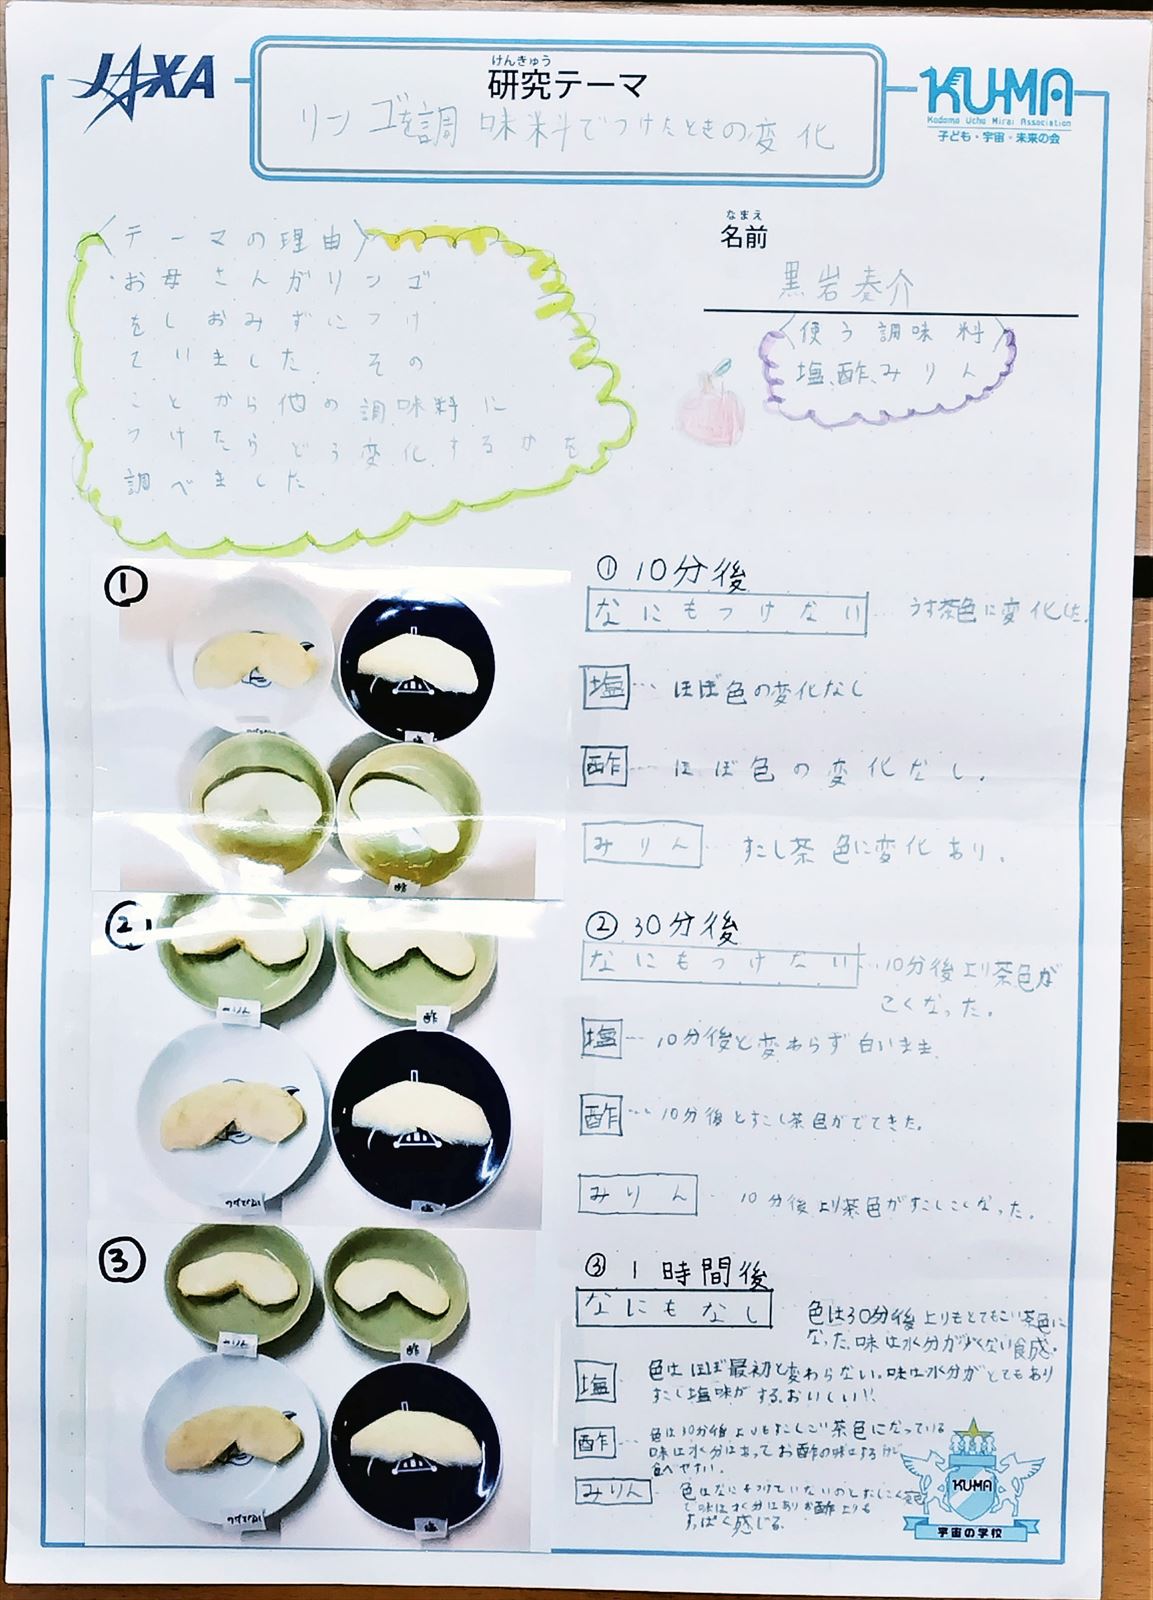 JAXA
けんきゅう
研究テーマ
リンゴを調味料でつけたときの変化
KU-MA
Kodomo Uchu Mirai Association
子ども・宇宙・未来の会
〈テーマの理由〉
・お母さんがリンゴ
をしおみずにつけ
ていました。その
ことから他の調味料に
つけたらどう変化するかを
調べました。
なまえ
名前
黒岩奏介
〈使う調味料〉
塩、酢、みりん
①
塩
酢
① 10分後
なにもつけない…うす茶色に変化した。
塩…ほぼ色の変化なし
酢…ほぼ色の変化なし。
みりん…すこし茶色に変化あり。
②
みりん
酢
つけてない
塩
② 30分後
なにもつけない…10分後より茶色が
こくなった。
塩…10分後と変わらず白いまま。
酢…10分後とすこし茶色がでてきた。
みりん…10分後より茶色がすこしこくなった。
③
みりん
酢
つけてない
塩
③ 1時間後
なにもなし 色は30分後よりもとてもこい茶色に
なった。味は水分が少ない食感。
塩 色はほぼ最初と変わらない。味は水分がとてもあり
すこし塩味がする。おいしい!!
酢…色は30分後よりもすこしこい茶色になっている
味は水分はあってお酢の味はするけど
食べやすい。
みりん…色はなにもつけていないのとおなじこい
で味は水分はありお酢よりも
すっぱく感じる。
KU-MA
宇宙の学校